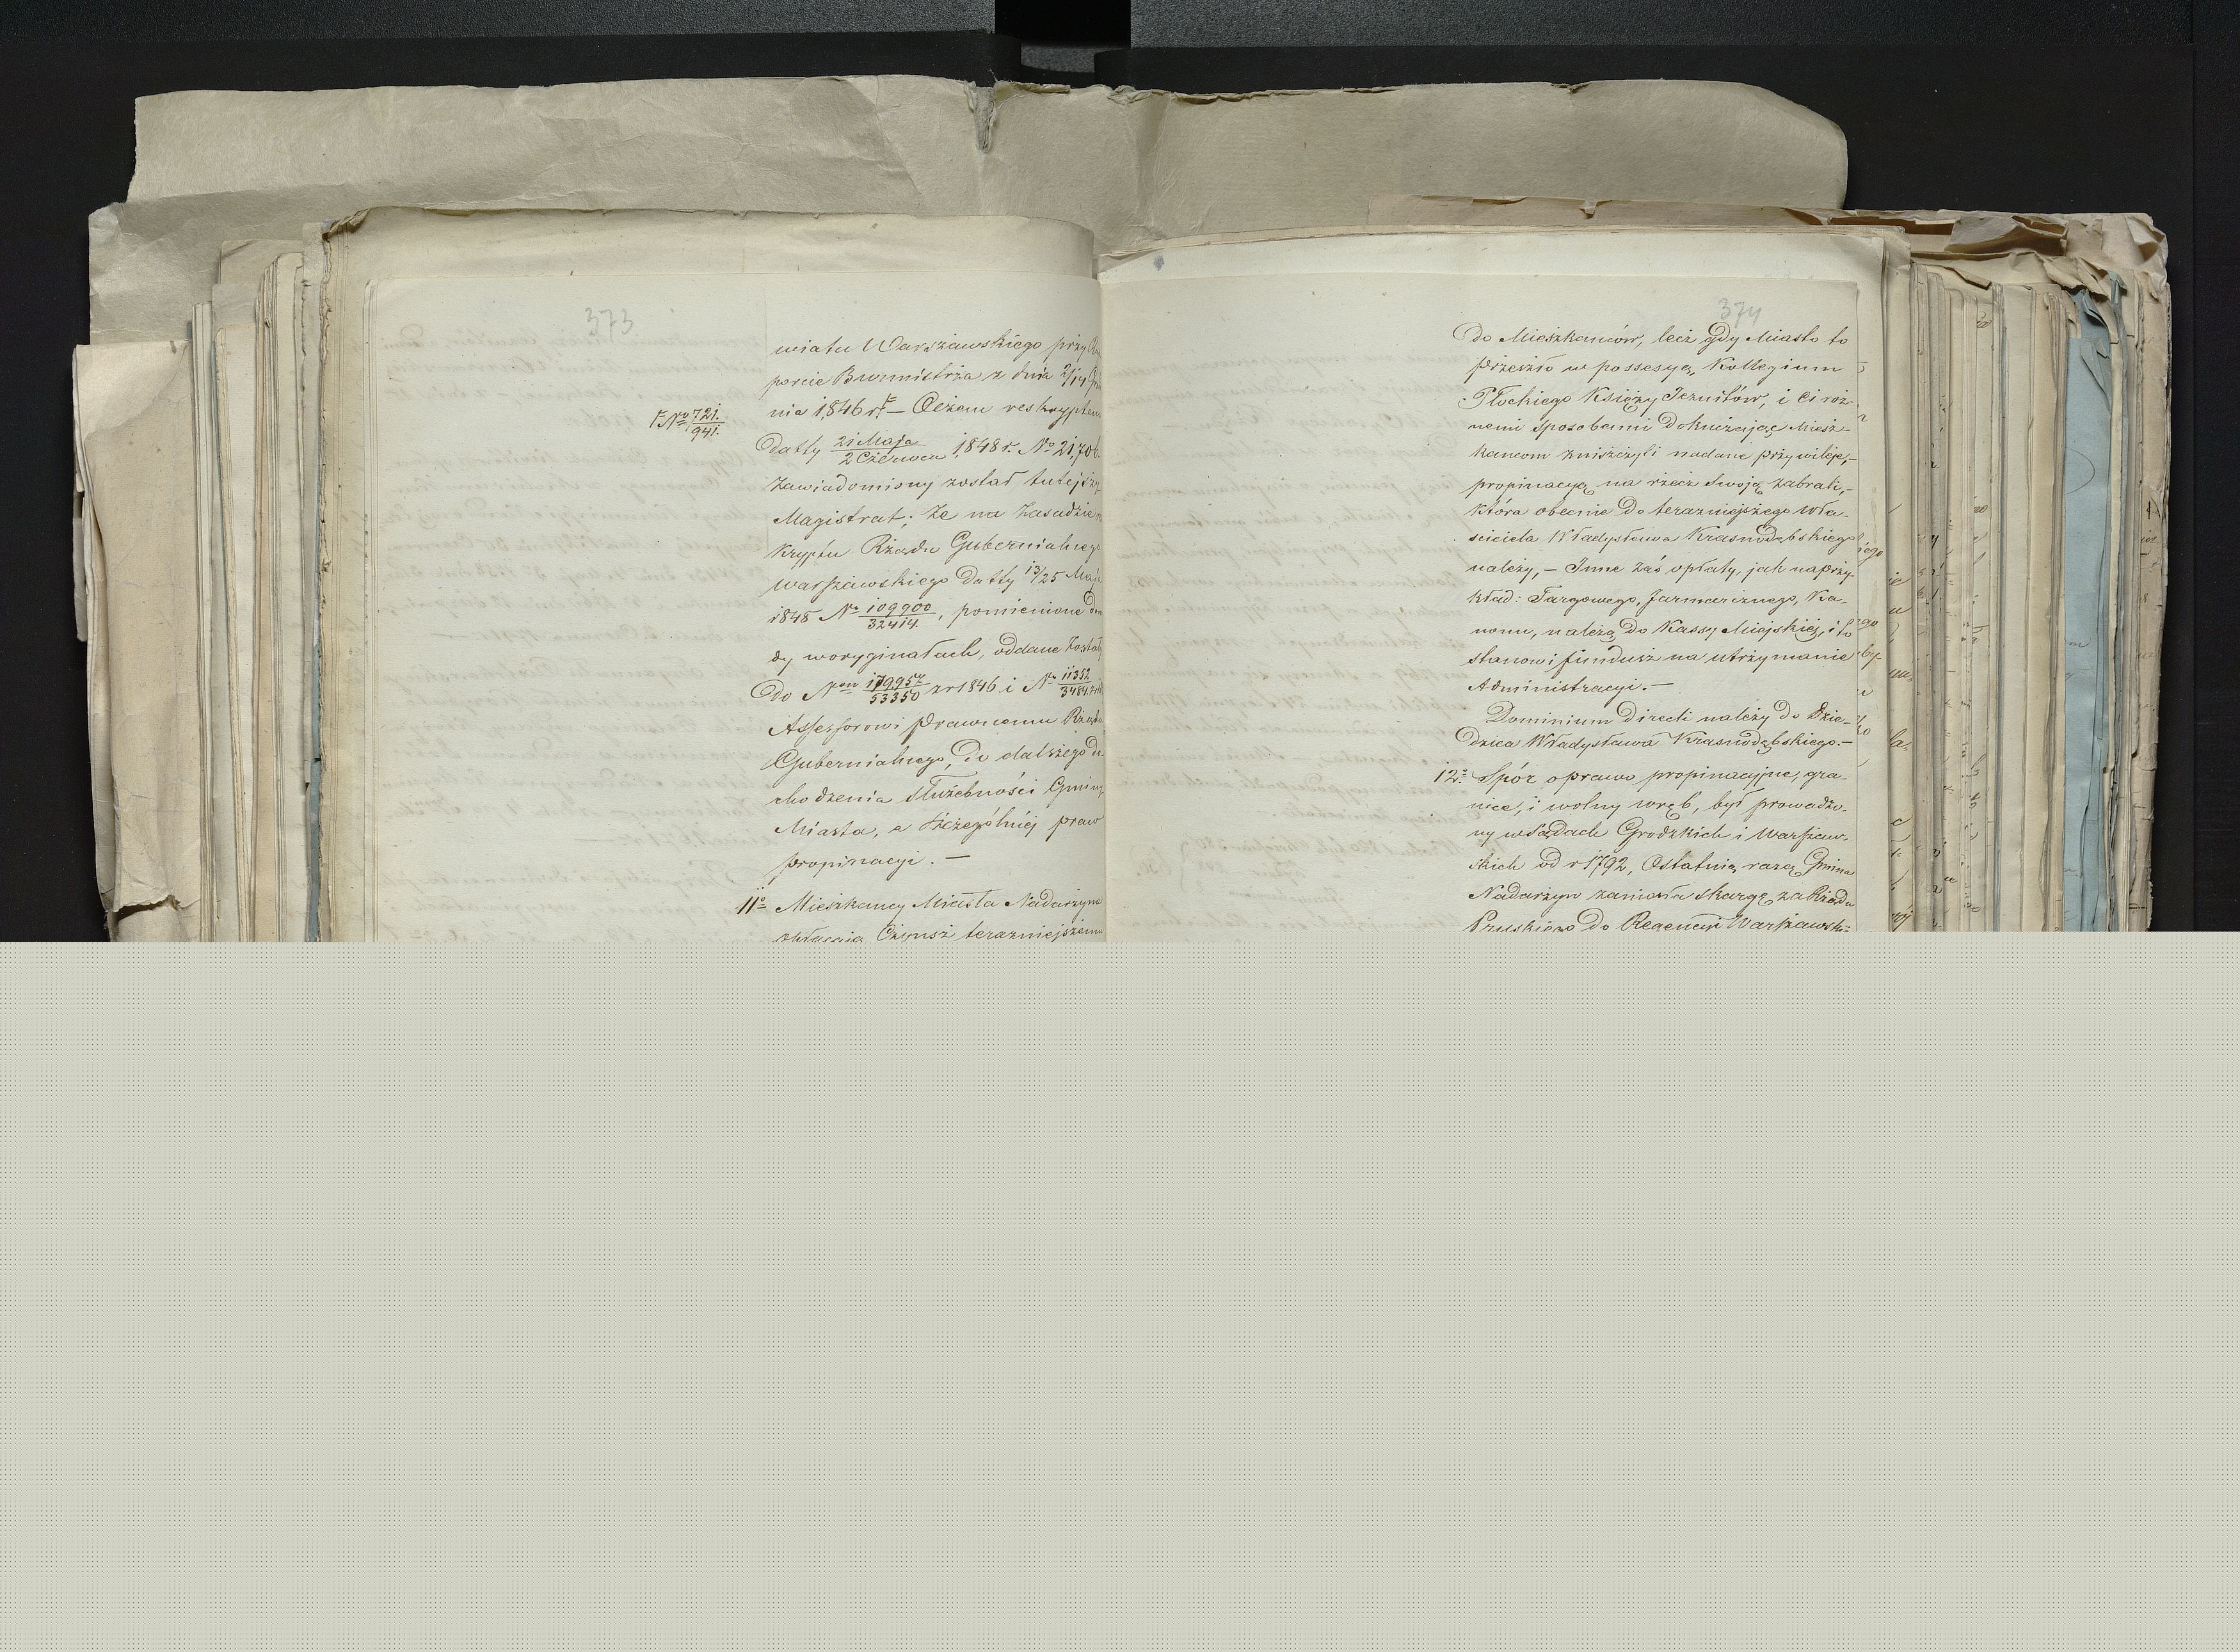 373
wiatu Warszawskiego przy
porcie Burmistrza z dnia 2/14
nia 1846 r. F — Ociem reskryptem
F No 721./941.
Datty 21 Maja/2 Czerwca 1848 r. No 21,706
zawiadomiony został tutejszy
Magistrat; że na zasadzie
kryptu Rządu Gubernialnego
Warszawskiego Datty 13/25 Maja
1848 No 109900/32414., pomienione
dy woryginałach, oddane został
Do Nrow 179957/53350 zr 1846 i No 11352
Assessorowi Prawnemu Rządu
Gubernialnego, do dalszego
chodzenia Służebności Gminy
Miasta, a szczególniej praw
propinacyi. —
11o Mieszkancy Miasta Nadarzyna
Czynsz terazniejszemu
374
Do Mieszkancow, lecz gdy Miasto to
przeszło w possesyą, Kollegium
Płockiego Księży Jezuitów, i Ci roż-
nemi sposobami Dokuczając Miesz-
kancom zniszczyli nadane przywileje,—
propinacyą na rzecz Swoją zabrali,—
która obecnie do terazniejszego Wła-
sciciela Władysława Krasnodębskiego
należy, — Inne zaś opłaty, jak naprzy-
kład: Targowego, Jarmarcznego, Ka-
nonu, należą do Kassy Miejskiej, i to
stanowi fundusz na utrzymanie
Administracyi. —
Dominium Directi należy do Dzie-
dzica Władysława Krasnodębskiego. —
12o Spór oprawo propinacyjne, gra-
nice, i wolny wręb, był prowadzo-
ny w Sądach Grodzkich i Warszaw-
skich od r 1792, Ostatnią razą Gmina
Nadarzyn zaniosła skargę za Rządu
Pruskiego Do Regencyi Warszawski-